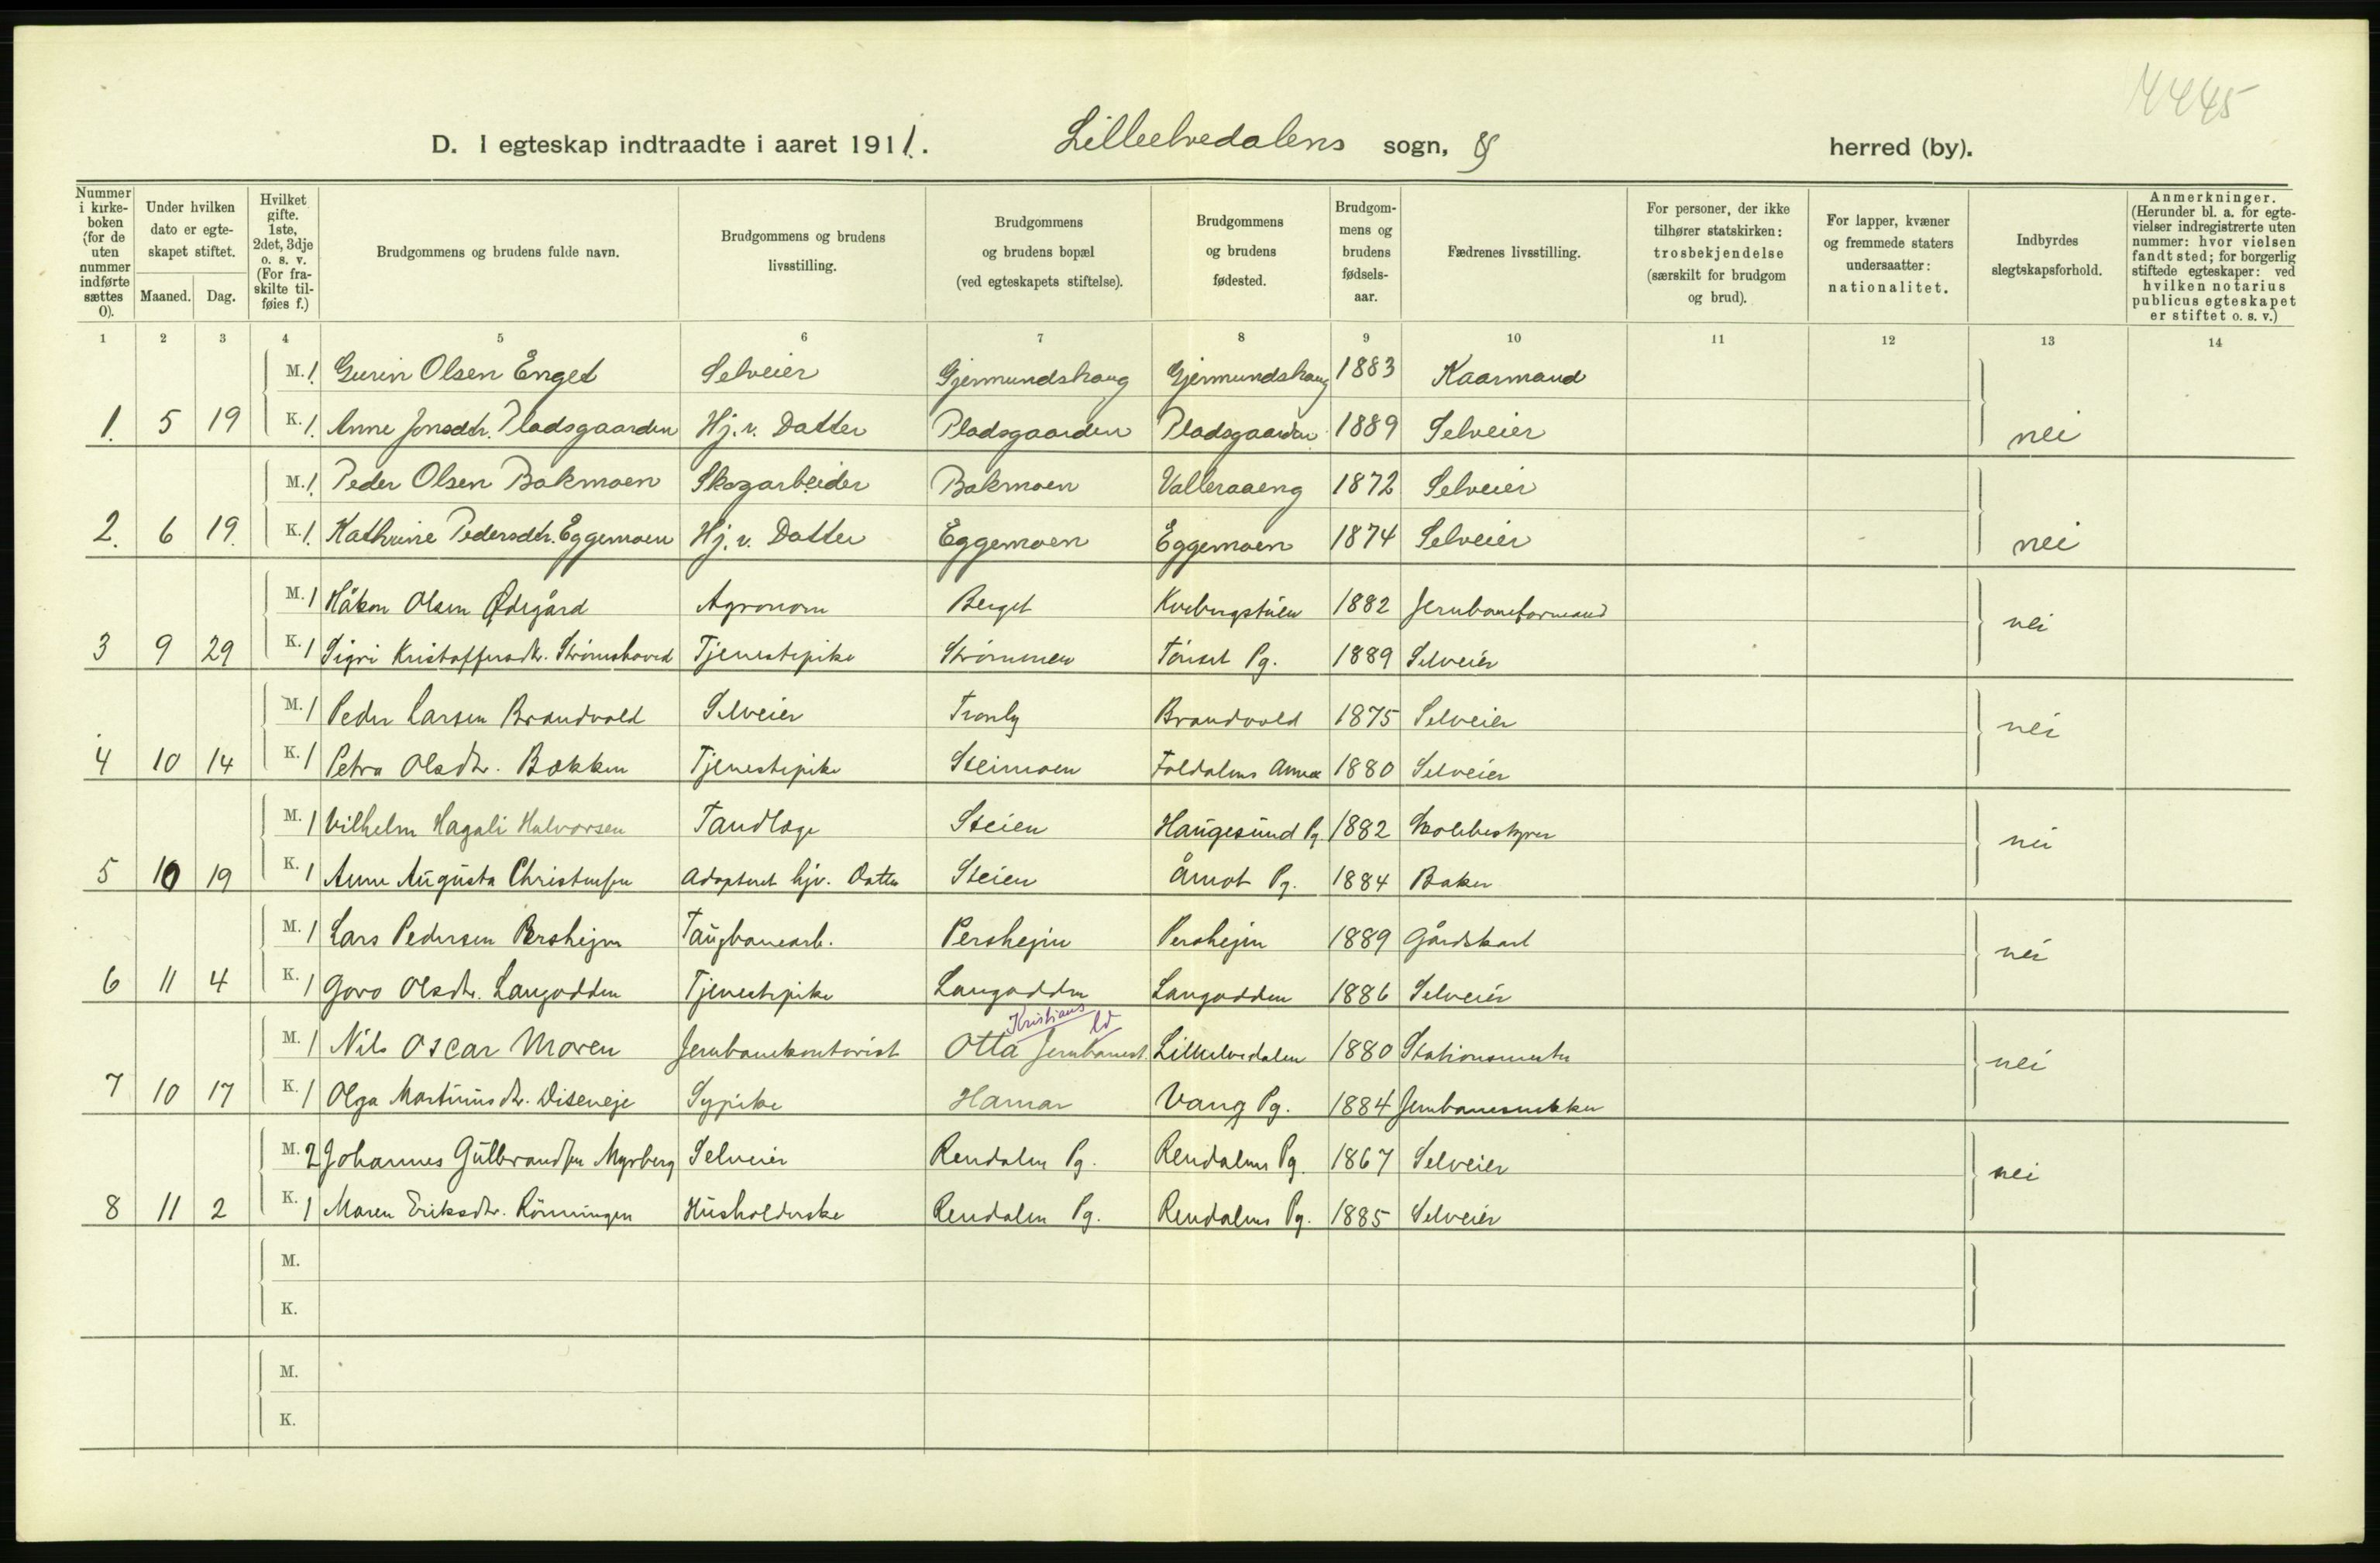 4445
D. I egteskap indtraadte i aaret 1911. Lilleelvedalens sogn, og herred (by).
Nummer i kirkeboken (for de uten nummer indførte sættes 0).
Under hvilken dato er egteskapet stiftet.
Maaned. Dag.
Hvilket gifte. 1ste, 2det, 3dje o. s. v. (For fraskilte tilføies f.)
Brudgommens og brudens fulde navn.
Brudgommens og brudens livsstilling.
Brudgommens og brudens bopæl (ved egteskapets stiftelse).
Brudgommens og brudens fødested.
Brudgommens og brudens fødselsaar.
Fædrenes livsstilling.
For personer, der ikke tilhører statskirken: trosbekjendelse (særskilt for brudgom og brud).
For lapper, kvæner og fremmede staters undersaatter: nationalitet.
Indbyrdes slegtskapsforhold.
Anmerkninger. (Herunder bl. a. for egtevielser indregistrerte uten nummer: hvor vielsen fandt sted; for borgerlig stiftede egteskaper: ved hvilken notarius publicus egteskapet er stiftet o. s. v.)
1 2 3 4 5 6 7 8 9 10 11 12 13 14
M. 1. Gurin Olsen Enget Selveier Gjermundshaug Gjermundshaug 1883 Kaarmand
1. 5 19 K. 1. Anne Jonsdtr. Pladsgaarden Hj. v. Datter Pladsgaarden Pladsgaarden 1889 Selveier nei
M. 1. Peder Olsen Bakmoen Skogarbeider Bakmoen Valleraaeng 1872 Selveier
2. 6 19. K. 1. Kathrine Pedersdtr. Eggemoen Hj. v. Datter Eggemoen Eggemoen 1874 Selveier nei
M. 1 Håkon Olsen Ødegård Agronom Berget 1882 Jernbaneformand
3 9 29 K. 1 Sigri Kristoffersdtr. Strømshoved Tjenestepike Strømmen Tönset Pg. 1889 Selveier nei
M. 1 Peder Larsen Brandvold Selveier Tronly Brandvold 1875 Selveier
4 10 14 K. 1 Petra Olsdtr. Bakken Tjenestepike Steimoen Foldalens Annex 1880 Selveier nei
M. 1 Vilhelm Hagali Halvorsen Tandlæge Steien Haugesund Pg 1882 Skolebestyrer
5 10 19 K. 1 Anne Augusta Christensen Adopteret hjv. Datter Steien Åmot Pg. 1884 Baker nei
M. 1 Lars Pedersen Pershejm Taugbanearb. Pershejm Pershejm 1889 Gårdskarl
6 11 4 K. 1 Goro Olsdtr. Langodden Tjenestepike Langodden Langodden 1886 Selveier nei
Kristians
M. 1 Nils Oscar Moren Jernbanekontorist Otta Jernbanest. Lilleelvedalen 1880 Stationsmester
7 10 17 K. 1 Olga Martinusdtr. Diseneje Sypike Hamar Vang Pg. 1884 Jernbanesnekker nei
M. 2 Johannes Gulbrandsen Myrberg Selveier Rendalen Pg. Rendalens Pg. 1867 Selveier
8 11 2 K. 1 Maren Eriksdtr. Rönningen Husholderske Rendalen Pg. Rendalens Pg. 1885 Selveier nei
M.
K.
M.
K.